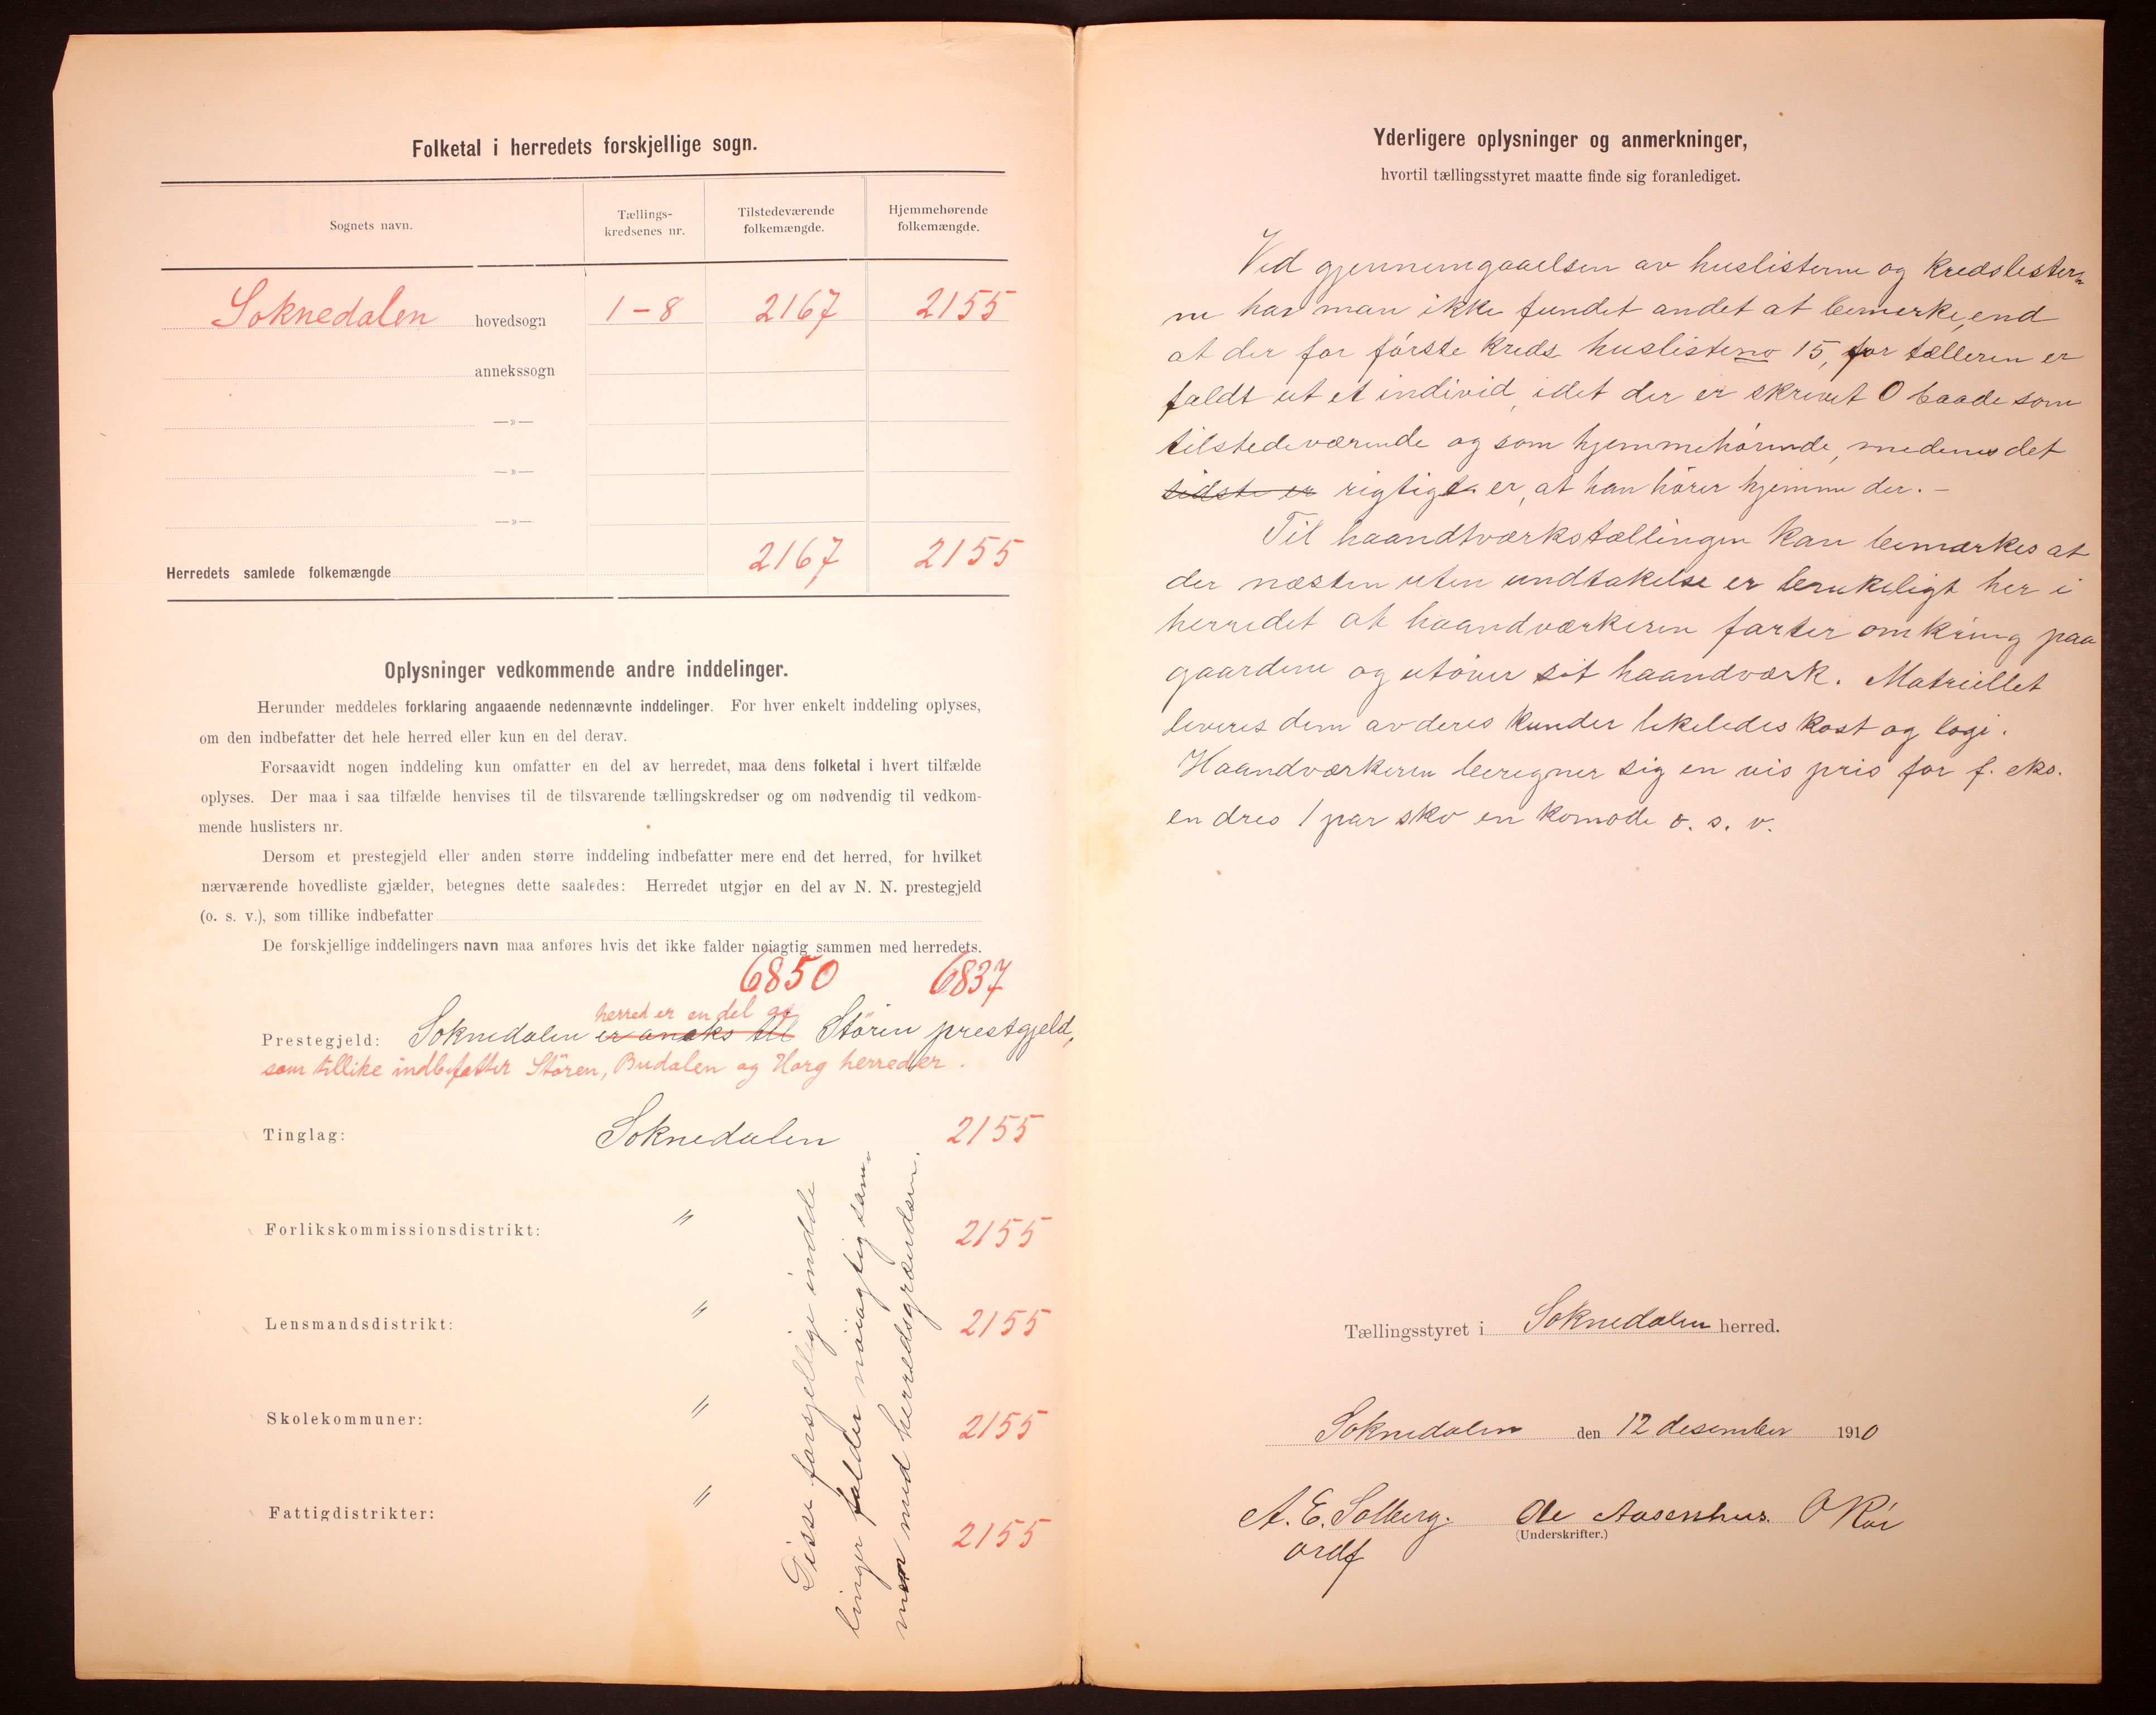 Folketal i herredets forskjellige sogn.
Sognets navn.
Tællings-
kredsenes nr.
Tilstedeværende
folkemængde.
Hjemmehørende
folkemængde.
Soknedalen hovedsogn 1-8 2167 2155
annekssogn
—»—
—»—
—»—
Herredets samlede folkemængde 2167 2155
Oplysninger vedkommende andre inddelinger.
Herunder meddeles forklaring angaaende nedennævnte inddelinger. For hver enkelt inddeling oplyses,
om den indbefatter det hele herred eller kun en del derav.
Forsaavidt nogen inddeling kun omfatter en del av herredet, maa dens folketal i hvert tilfælde
oplyses. Der maa i saa tilfælde henvises til de tilsvarende tællingskredser og om nødvendig til vedkom-
mende huslisters nr.
Dersom et prestegjeld eller anden større inddeling indbefatter mere end det herred, for hvilket
nærværende hovedliste gjælder, betegnes dette saaledes: Herredet utgjør en del av N. N. prestegjeld
(o. s. v.), som tillike indbefatter
De forskjellige inddelingers navn maa anføres hvis det ikke falder nøiagtig sammen med herredets.
6850 6837
herred er en del av
Prestegjeld: Soknedalen er aneks til Stören prestgjeld,
som tillike indbefatter Stören, Budalen og Horg herreder.
Tinglag: Soknedalen 2155
Forlikskommissionsdistrikt: " 2155
Lensmandsdistrikt: " 2155
Skolekommuner: " 2155
Fattigdistrikter: " 2155
Disse forsjellige indde
linger falder nöiagtig sam-
men med herredsgrændsen.
Yderligere oplysninger og anmerkninger,
hvortil tællingsstyret maatte finde sig foranlediget.
Ved gjennemgaaelsen av huslisterne og kredslister-
ne har man ikke fundet andet at bemerke, end
at der for förste kreds huslisteno 15, for tælleren er
faldt ut et individ, idet der er skrevet 0 baade som
tilstedeværende og som hjemmehörende, medens det
sidste er rigtige er, at han hörer hjemme der. –
Til haandtværkstællingen kan bemærkes at
der næsten uten undtakelse er brukeligt her i
herredet at haandværkeren farter omkring paa
gaardene og utöver sit haandværk. Matriellet
leveres dem av deres kunder likeledes kost og logi.
Haandværkeren beregner sig en vis pris for f. eks.
en dres 1 par sko en komode o. s. v.
Tællingsstyret i Soknedalen herred.
Soknedalen den 12 desember 1910
A. E. Solberg. Ole Aasenhus.
(Underskrifter.)
ordf